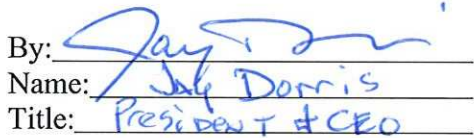 By: Jay Dorris
Name: Jay Dorris
Title: President & CEO